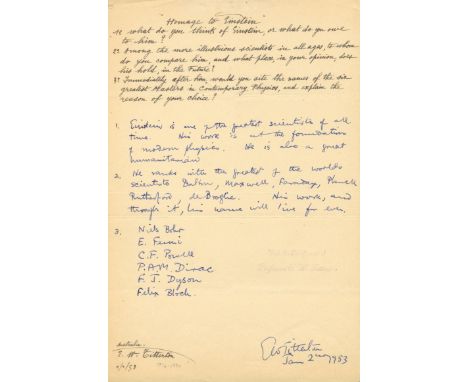 "Homage to Einstein"
1º what do you think of Einstein, or what do you owe
to him?
2º Among the more illustrious scientists in all ages, to whom
do you compare him, and what place, in your opinion, does
his hold, in the Future?
3º Immediatly after him, would you cite the names of the six
greatest Masters in Contemporary Physics, and explain the
reason of your choice?
1. Einstein is one of the greatest scientists of all
time. His work is at the foundation
of modern physics. He is also a great
humanitarian
2. He ranks with the greatest of the worlds
scientists Dalton, Maxwell, Faraday, Planck
Rutherford, de Broglie. His work, and
through it, his name will live for ever.
3. Niels Bohr
E. Fermi
C.F. Powell
P.A.M. Dirac
F. J. Dyson
Felix Bloch.
EWTitterton
Jan 2nd 1953
Australia
E. W. Titterton